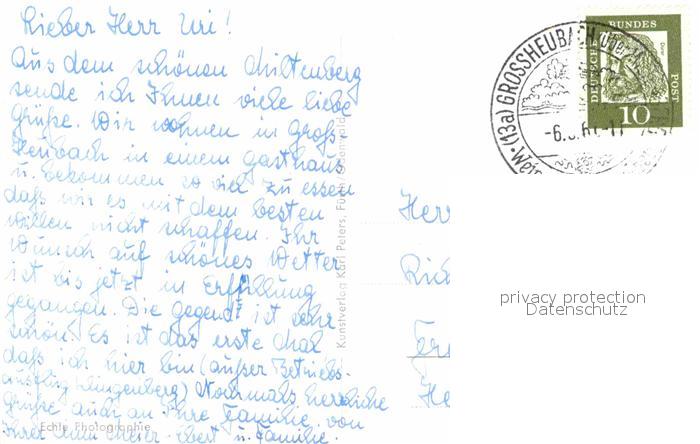 Lieber Herr Uri!
Aus dem schönen Miltenberg
sende ich Ihnen viele liebe
Grüße. Wir wohnen in Groß-
Heubach in einem Gasthaus
u. bekommen so viel zu essen
daß wir es mit dem besten
Willen nicht schaffen. Ihr
Wunsch auf schönes Wetter
ist bis jetzt in Erfüllung
gegangen. Die Gegend ist sehr
schön. Es ist das erste Mal
daß ich hier bin (außer Betriebs-
ausflug Klingenberg) Nochmals herzliche
Grüße auch an Ihre Familie von
u. Familie.
Echte Photographie
Kunstverlag Karl Peters, Fürth
Herr
(13a) GROSSHEUBACH über
-6.
DEUTSCHE BUNDES POST
Dürer
10
privacy protection
Datenschutz